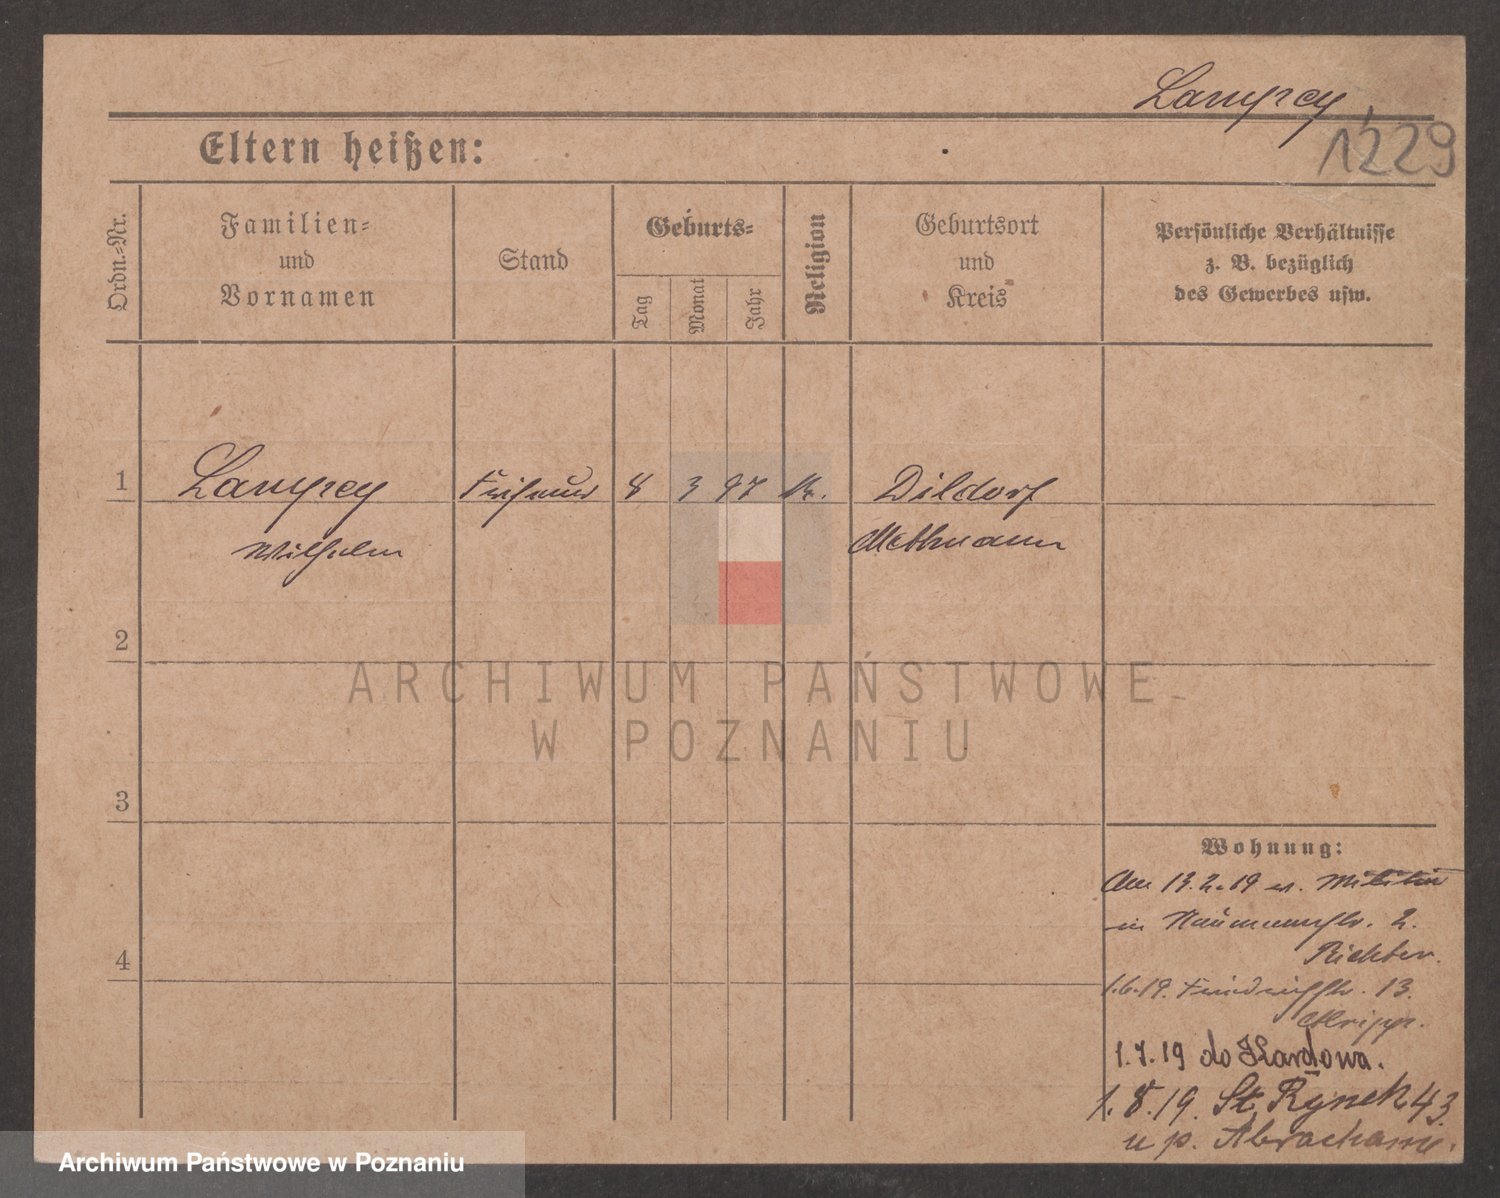 Lamprey,
1229
Eltern heißen:
Ordn.-Nr.
Familien-
und
Vornamen
Stand
Geburts-
Tag
Monat
Jahr
Religion
Geburtsort
und
Kreis
Persönliche Verhältnisse
z. B. bezüglich
des Gewerbes usw.
1 Lamprey 8 3 97 Dildorf
Wilhelm Mettmann
2
ARCHIWUM PAŃSTWOWE
W POZNANIU
3
Wohnung:
13.2.19 Militär
in Naumannstr. 2.
Richter.
4
1.6.19. Friedrichstr. 13.
1.7.19 do
1.8.19. St. Rynek 43.
u p.
Archiwum Państwowe w Poznaniu